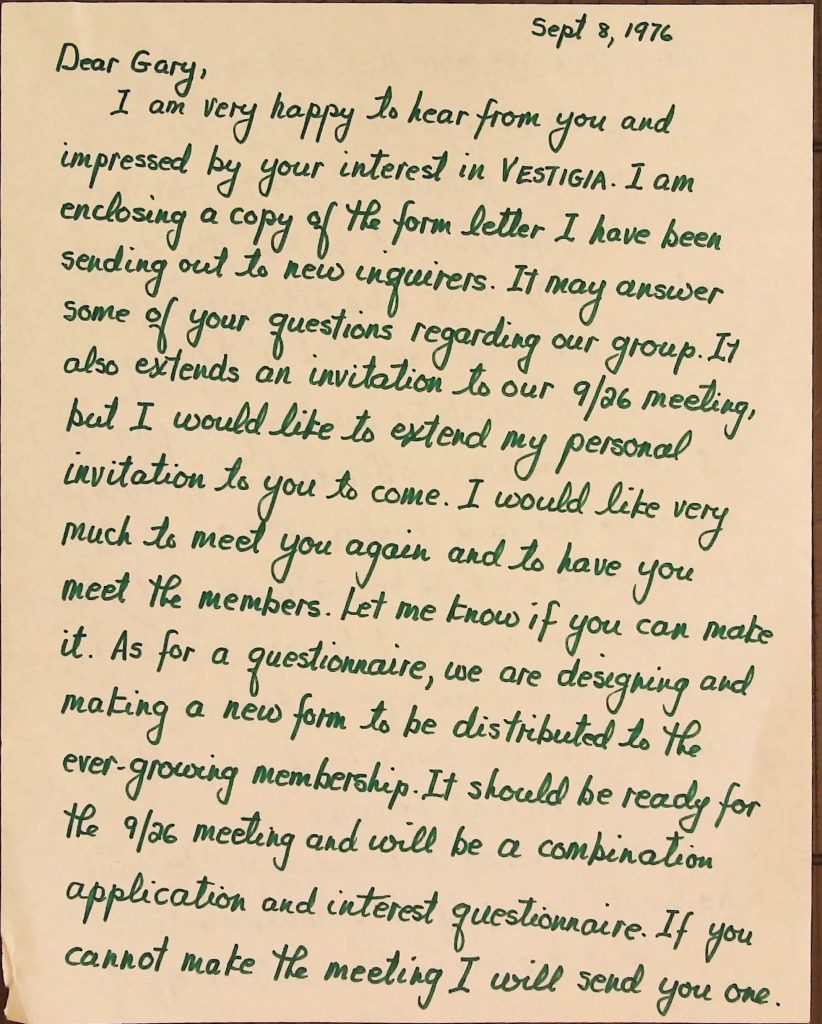 Sept 8, 1976
Dear Gary,
I am very happy to hear from you and
impressed by your interest in VESTIGIA. I am
enclosing a copy of the form letter I have been
sending out to new inquirers. It may answer
some of your questions regarding our group. It
also extends an invitation to our 9/26 meeting,
but I would like to extend my personal
invitation to you to come. I would like very
much to meet you again and to have you
meet the members. Let me know if you can make
it. As for a questionnaire, we are designing and
making a new form to be distributed to the
ever-growing membership. It should be ready for
the 9/26 meeting and will be a combination
application and interest questionnaire. If you
cannot make the meeting I will send you one.